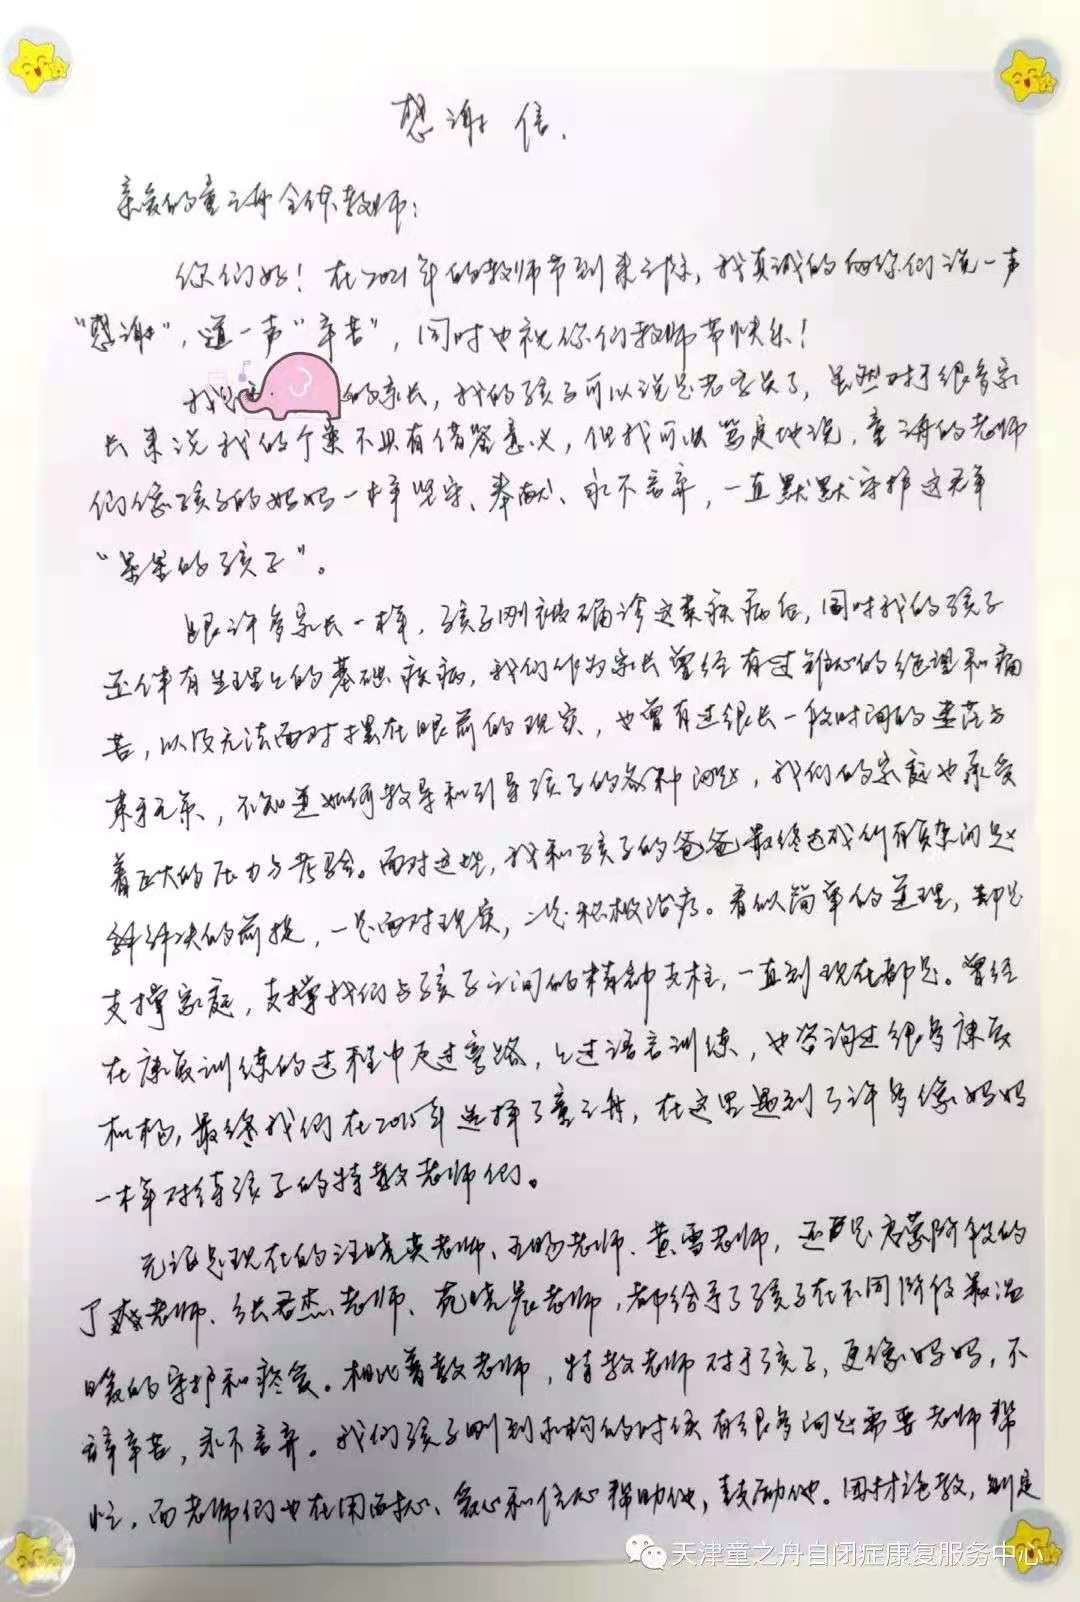 感谢信.
亲爱的童之舟全体教师:
你们好！在2021年的教师节到来之际，我真诚的向你们说一声
“感谢”，道一声“辛苦”，同时也祝你们教师节快乐！
我是 的家长，我的孩子可以说是老学员了，虽然对于很多家
长来说我的个案不具有借鉴意义，但我可以笃定地说，童之舟的老师
们像孩子的妈妈一样坚守、奉献、永不言弃，一直默默守护这群
“星星的孩子”。
跟许多家长一样，孩子刚被确诊这类疾病后，同时我的孩子
还伴有生理上的基础疾病，我们作为家长曾经有过锥心的绝望和痛
苦，以及无法面对摆在眼前的现实，也曾有过很长一段时间的迷茫与
束手无策，不知道如何教导和引导孩子的各种问题，我们的家庭也承受
着巨大的压力与考验。面对这些，我和孩子的爸爸最终达成所有复杂问题
解决的前提，一是面对现实，二是积极治疗。看似简单的道理，却是
支撑家庭，支撑我们与孩子之间的精神支柱，一直到现在都是。曾经
在康复训练的过程中走过弯路，上过语言训练，也咨询过很多康复
机构，最终我们在2015年选择了童之舟，在这里遇到了许多像妈妈
一样对待孩子的特教老师们。
无论是现在的汪晓英老师、王 老师、黄雪老师，还是启蒙阶段的
丁 老师、张君杰老师、苑晓晨老师，都给予了孩子在不同阶段最温
暖的守护和疼爱。相比普教老师，特教老师对于孩子，更像妈妈，不
辞辛苦，永不言弃。我们孩子刚到机构的时候有很多问题需要老师帮
忙，而老师们也在用耐心、爱心和信心帮助他，鼓励他。因材施教，制定
天津童之舟自闭症康复服务中心